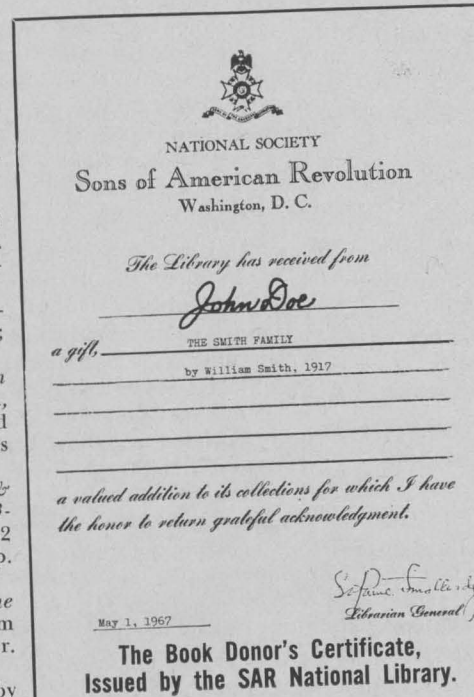 NATIONAL SOCIETY
Sons of American Revolution
Washington, D. C.
The Library has received from
John Doe
a gift, THE SMITH FAMILY
by William Smith, 1917
a valued addition to its collections for which I have
the honor to return grateful acknowledgment.
Librarian General
May 1, 1967
The Book Donor's Certificate,
Issued by the SAR National Library.